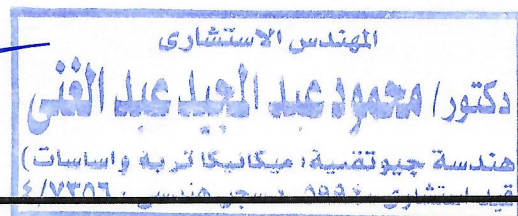 المهندس الاستشارى
دكتور/ محمود عبد المجيد عبد الغنى
هندسة جيوتقنية، ميكانيكا تربة واساسات)
قيد استشارى